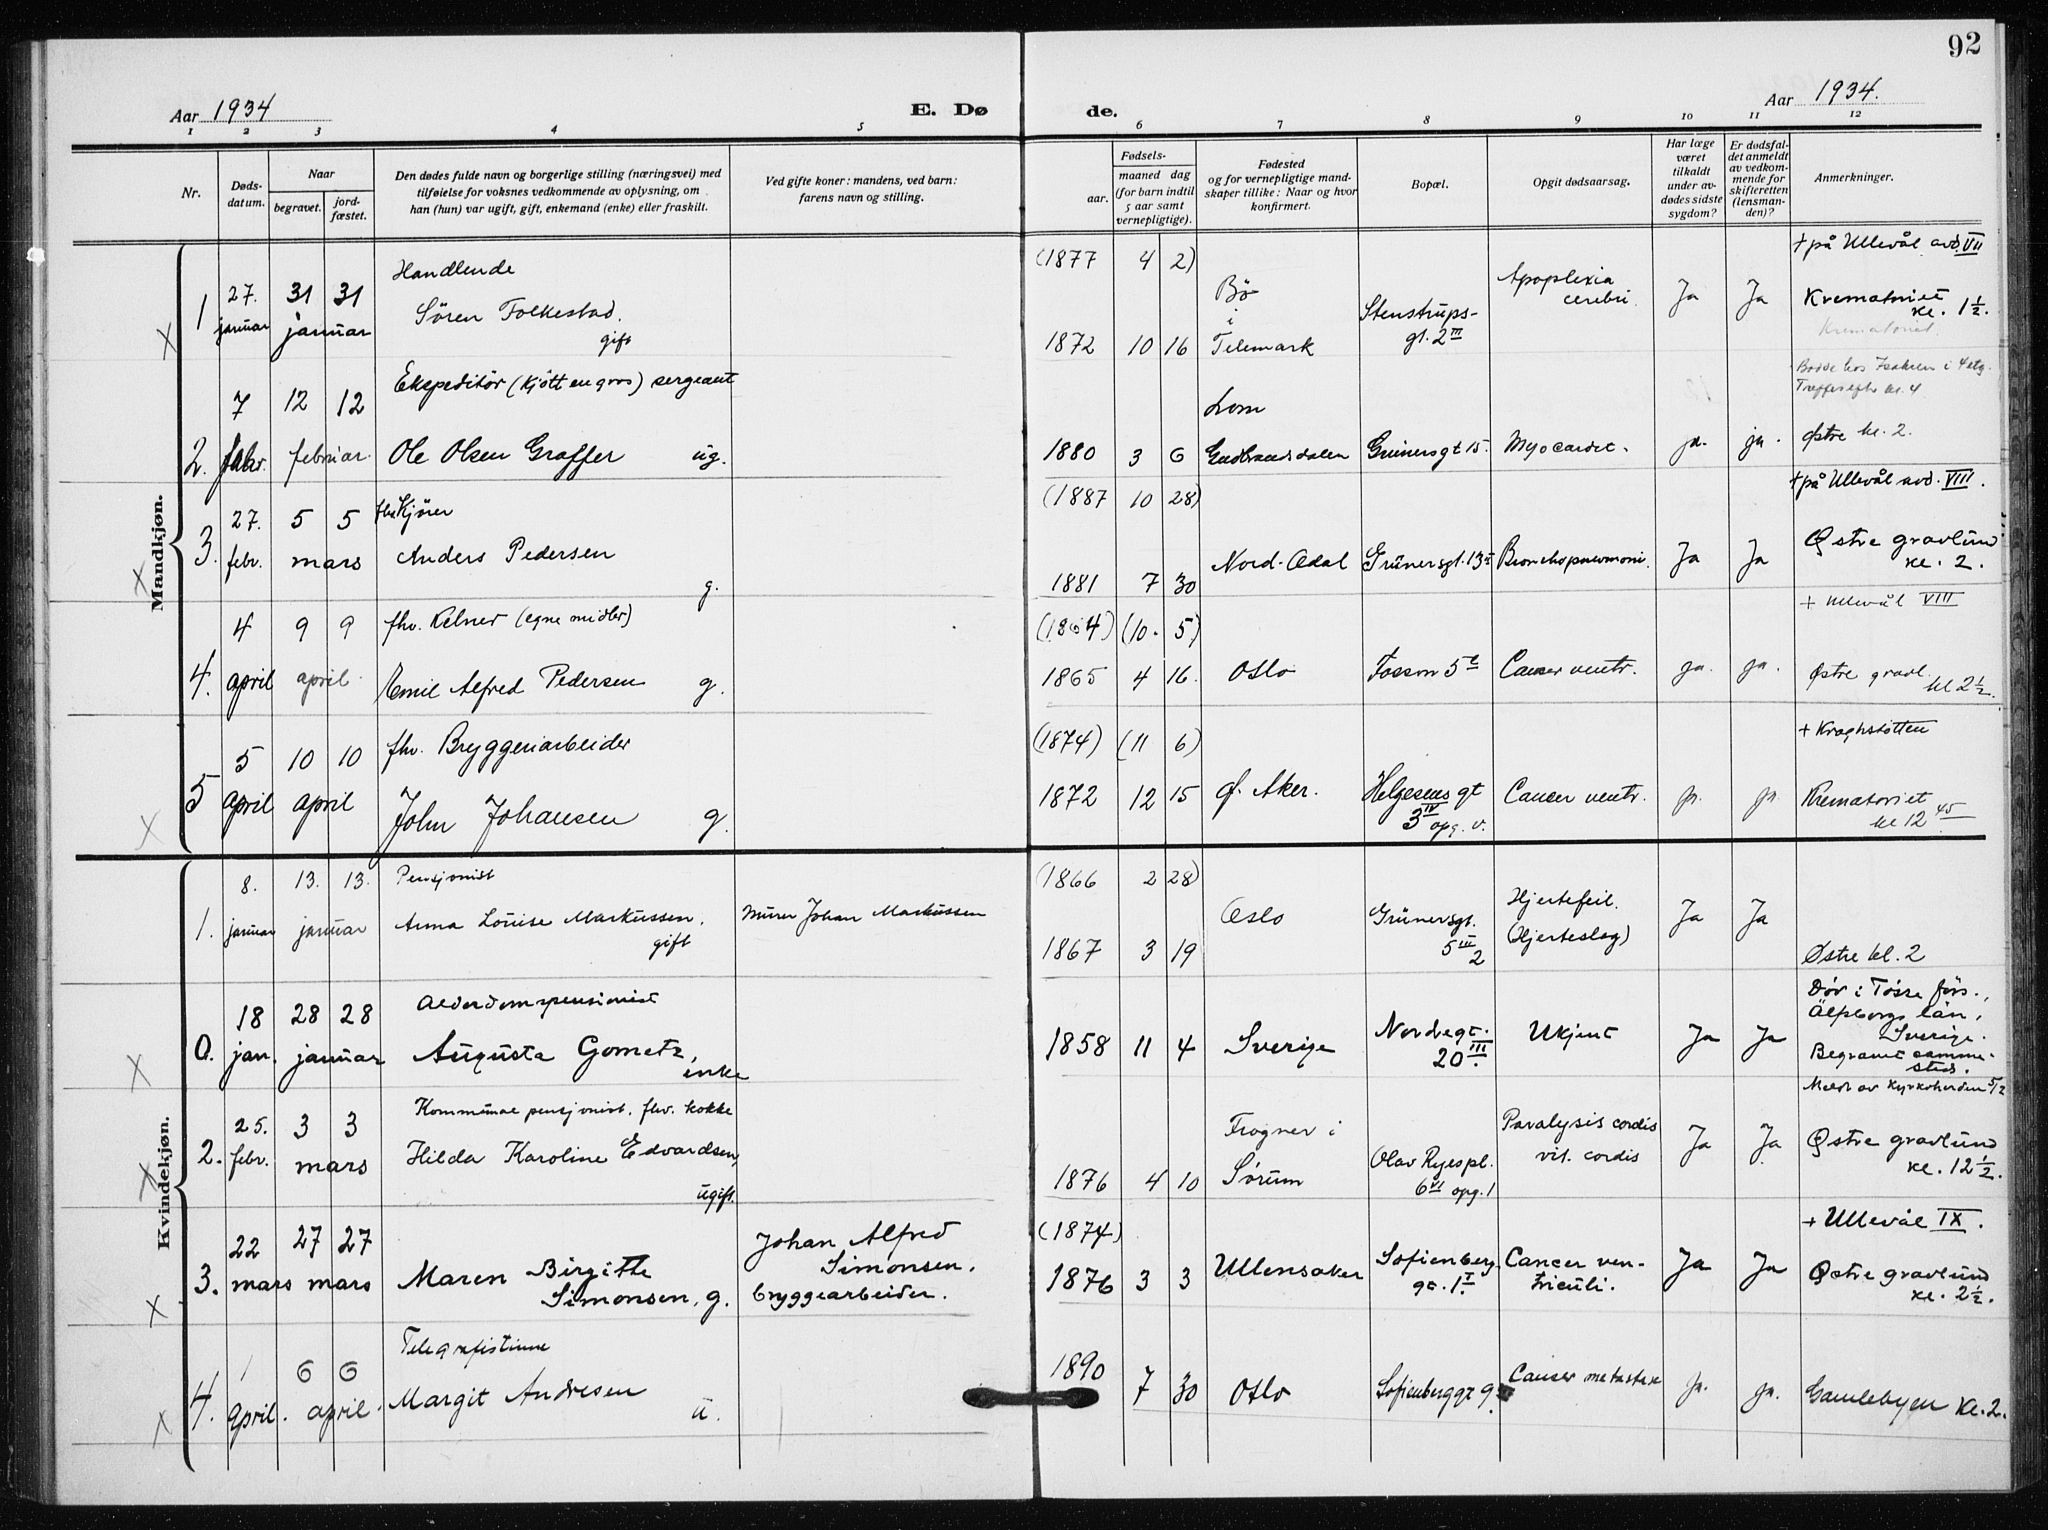 92
Aar 1934
E. Dø
de.
Aar 1934.
1 2 3 4 5 6 7 8 9 10 11 12
Nr.
Døds-
datum.
Naar
begravet.
jord-
fæstet.
Den dødes fulde navn og borgerlige stilling (næringsvei) med
tilføielse for voksnes vedkommende av oplysning, om
han (hun) var ugift, gift, enkemand (enke) eller fraskilt.
Ved gifte koner: mandens, ved barn:
farens navn og stilling.
Fødsels-
aar. maaned dag
(for barn indtil
5 aar samt
vernepligtige).
Fødested
og for vernepligtige mand-
skaper tillike: Naar og hvor
konfirmert.
Bopæl.
Opgit dødsaarsag.
Har læge
været
tilkaldt
under av-
dødes sidste
sygdom?
Er dødsfal-
det anmeldt
av vedkom-
mende for
skifteretten
(lensman-
den)?
Anmerkninger.
Mandkjøn.
1
27.
januar
31 31
januar
Handlende
Sören Folkestad.
gift
(1877 4 2)
1872 10 16
Bö
i
Telemark
Stenstrups-
gt. 2 III
Apoplexia
cerebri.
Ja
Ja
+ på Ullevål avd. VII
Krematoriet
kl. 1 1/2.
Krematoriet.
2.
7
febr.
12 12
februar.
Ekspeditör (kjött en gros) sergeant
Ole Olsen Graffer ug.
1880 3 6
Lom
Gudbrandsdalen
Grünersgt 15.
Myocardit.
ja.
ja.
Bodde hos Isaksen i 4 etg.
Treffes efter kl. 4
Østre kl. 2.
3.
27.
febr.
5 5
mars
fhv. Kjörer
Anders Pedersen
g.
(1887 10 28)
1881 7 30
Nord-Odal
Grünersgt. 13 II
Bronchopneumoni.
Ja
Ja
+ på Ullevål avd. VIII.
Østre gravlund
kl. 2.
4.
4
april
9 9
april.
fhv. Kelner (egne midler)
Emil Alfred Pedersen g.
(1864) (10. 5)
1865 4 16.
Oslo
Fossvn 5 c
Cancer ventr.
ja.
ja.
+ Ullevål VIII
Østre gravl.
kl 2 1/2.
5
5
april
10 10
april
fhv. Bryggeriarbeider
John Johansen g.
(1874) (11 6)
1872 12 15
Ø. Aker.
Helgesens gt
3 IV opg. v.
Cancer ventr.
ja.
ja.
+ Kraghstötten
Krematoriet
kl 12 45
Kvindekjøn.
1.
8.
januar
13. 13.
januar
Pensjonist
Anna Louise Markussen,
gift
Murer Johan Markussen
(1866 2 28)
1867 3 19
Oslo
Grünersgt.
5 III
2
Hjertefeil.
(Hjerteslag)
Ja
Ja
Østre kl. 2
0.
18
jan.
28 28
januar
Alderdomspensionist
Augusta Gometz,
enke
1858 11 4
Sverige
Nordregt.
20 III.
Ukjent
Ja
Ja
Död i Tösse förs.,
Älfsborgs län,
Sverige.
Begravet samme-
steds.
Meldt av kyrkoherden 5/2
2.
25.
febr.
3 3
mars
Kommunal pensjonist, fhv. kokke
Hilda Karoline Edvardsen,
ugift.
1876 4 10
Frogner i
Sörum
Olav Ryespl.
6 VI opg. 1
Paralysis cordis
vit. cordis
Ja
Ja
Østre gravlund
kl. 12 1/2.
3.
22
mars
27 27
mars
Maren Birgitte
Simonsen, g.
Johan Alfred
Simonsen,
bryggearbeider.
(1874)
1876 3 3
Ullensaker
Sofienberg-
gt. 1 I.
Cancer ven-
triculi.
Ja
Ja
+ Ullevål IX.
Østre gravlund
kl. 2 1/2.
4.
1
april.
6 6
april.
Telegrafistinne
Margit Andresen
u.
1890
7 30
Oslo
Sofienberggt 9.
Cancer metastase
ja.
ja.
Gamlebyen kl. 2.